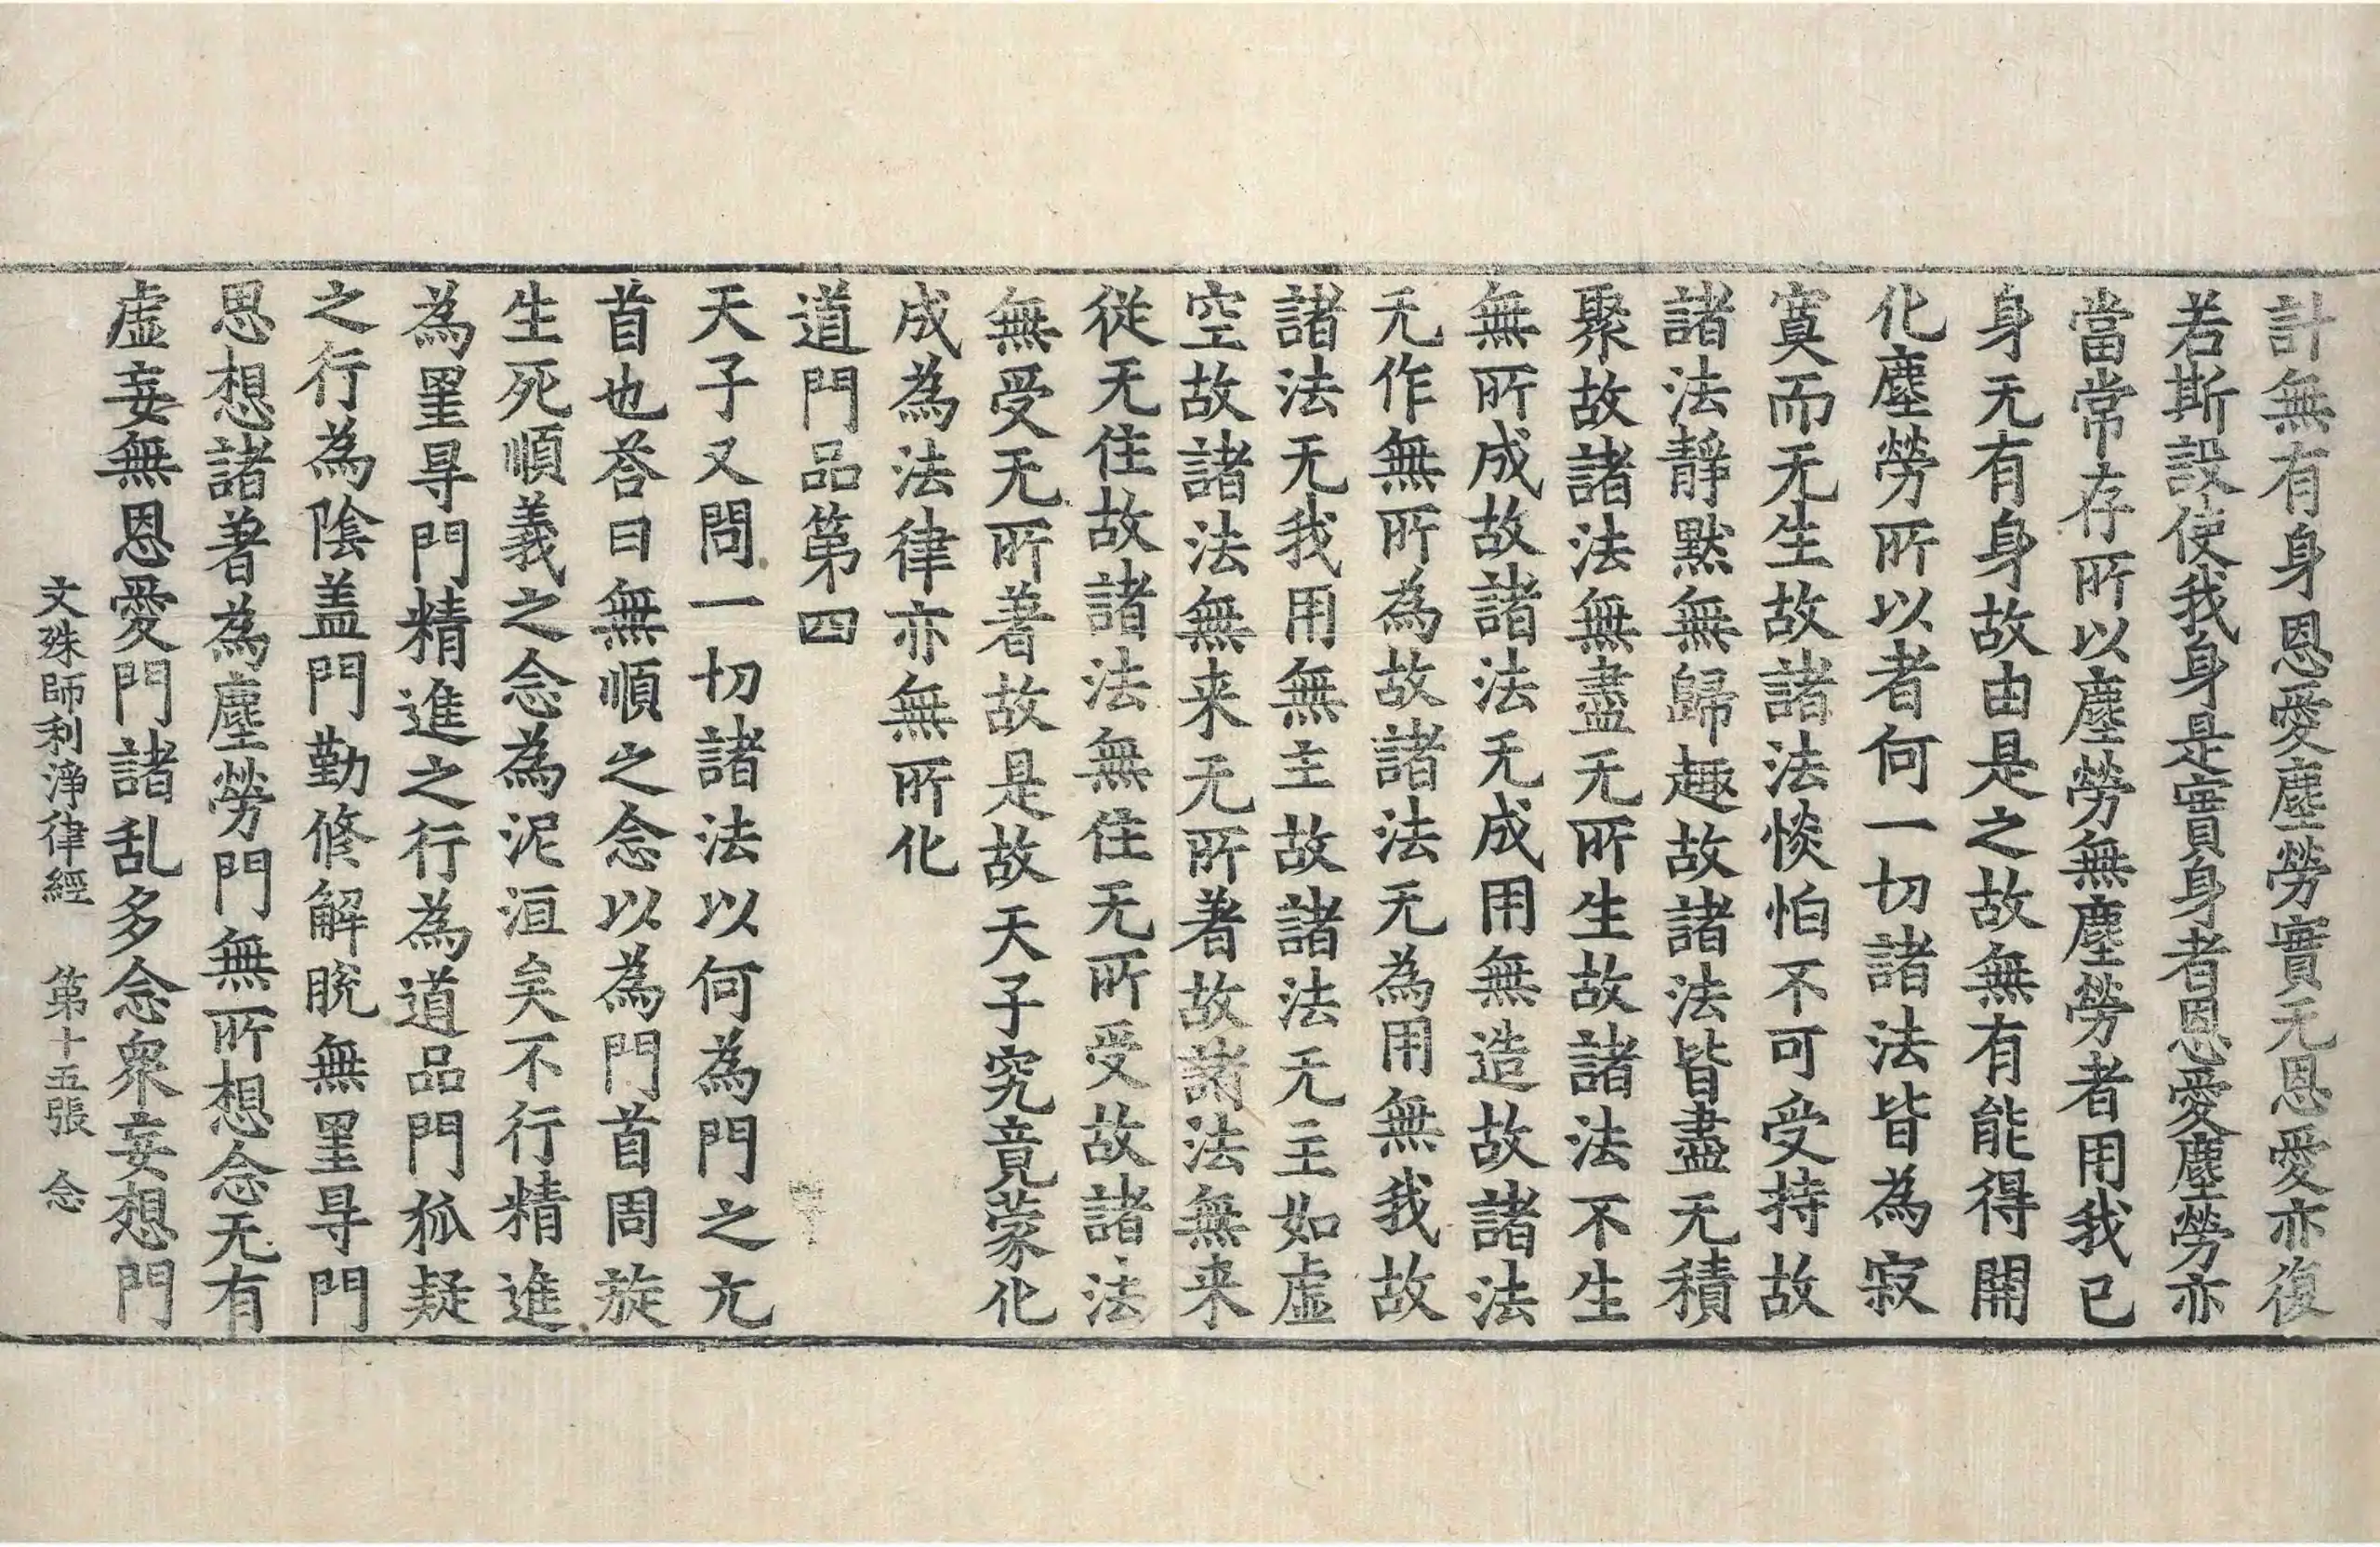 計無有身恩愛塵勞實无恩愛亦復
若斯設使我身是實身者恩愛塵勞亦
當常存所以塵勞無塵勞者用我已
身无有身故由是之故無有能得開
化塵勞所以者何一切諸法皆為寂
寞而无生故諸法惔怕不可受持故
諸法靜默無歸趣故諸法皆盡无積
聚故諸法無盡无所生故諸法不生
無所成故諸法无成用無造故諸法
无作無所為故諸法无為用無我故
諸法无我用無主故諸法无主如虛
空故諸法無来无所著故諸法無来
從无住故諸法無住无所受故諸法
無受无所著故是故天子究竟蒙化
成為法律亦無所化
道門品第四
天子又問一切諸法以何為門之元
首也荅曰無順之念以為門首周旋
生死順義之念為泥洹矣不行精進
為罣㝵門精進之行為道品門狐疑
之行為陰盖門勤修解脫無罣㝵門
思想諸著為塵勞門無所想念无有
虛妄無恩愛門諸乱多念衆妄想門
文殊師利淨律經 第十五張 念